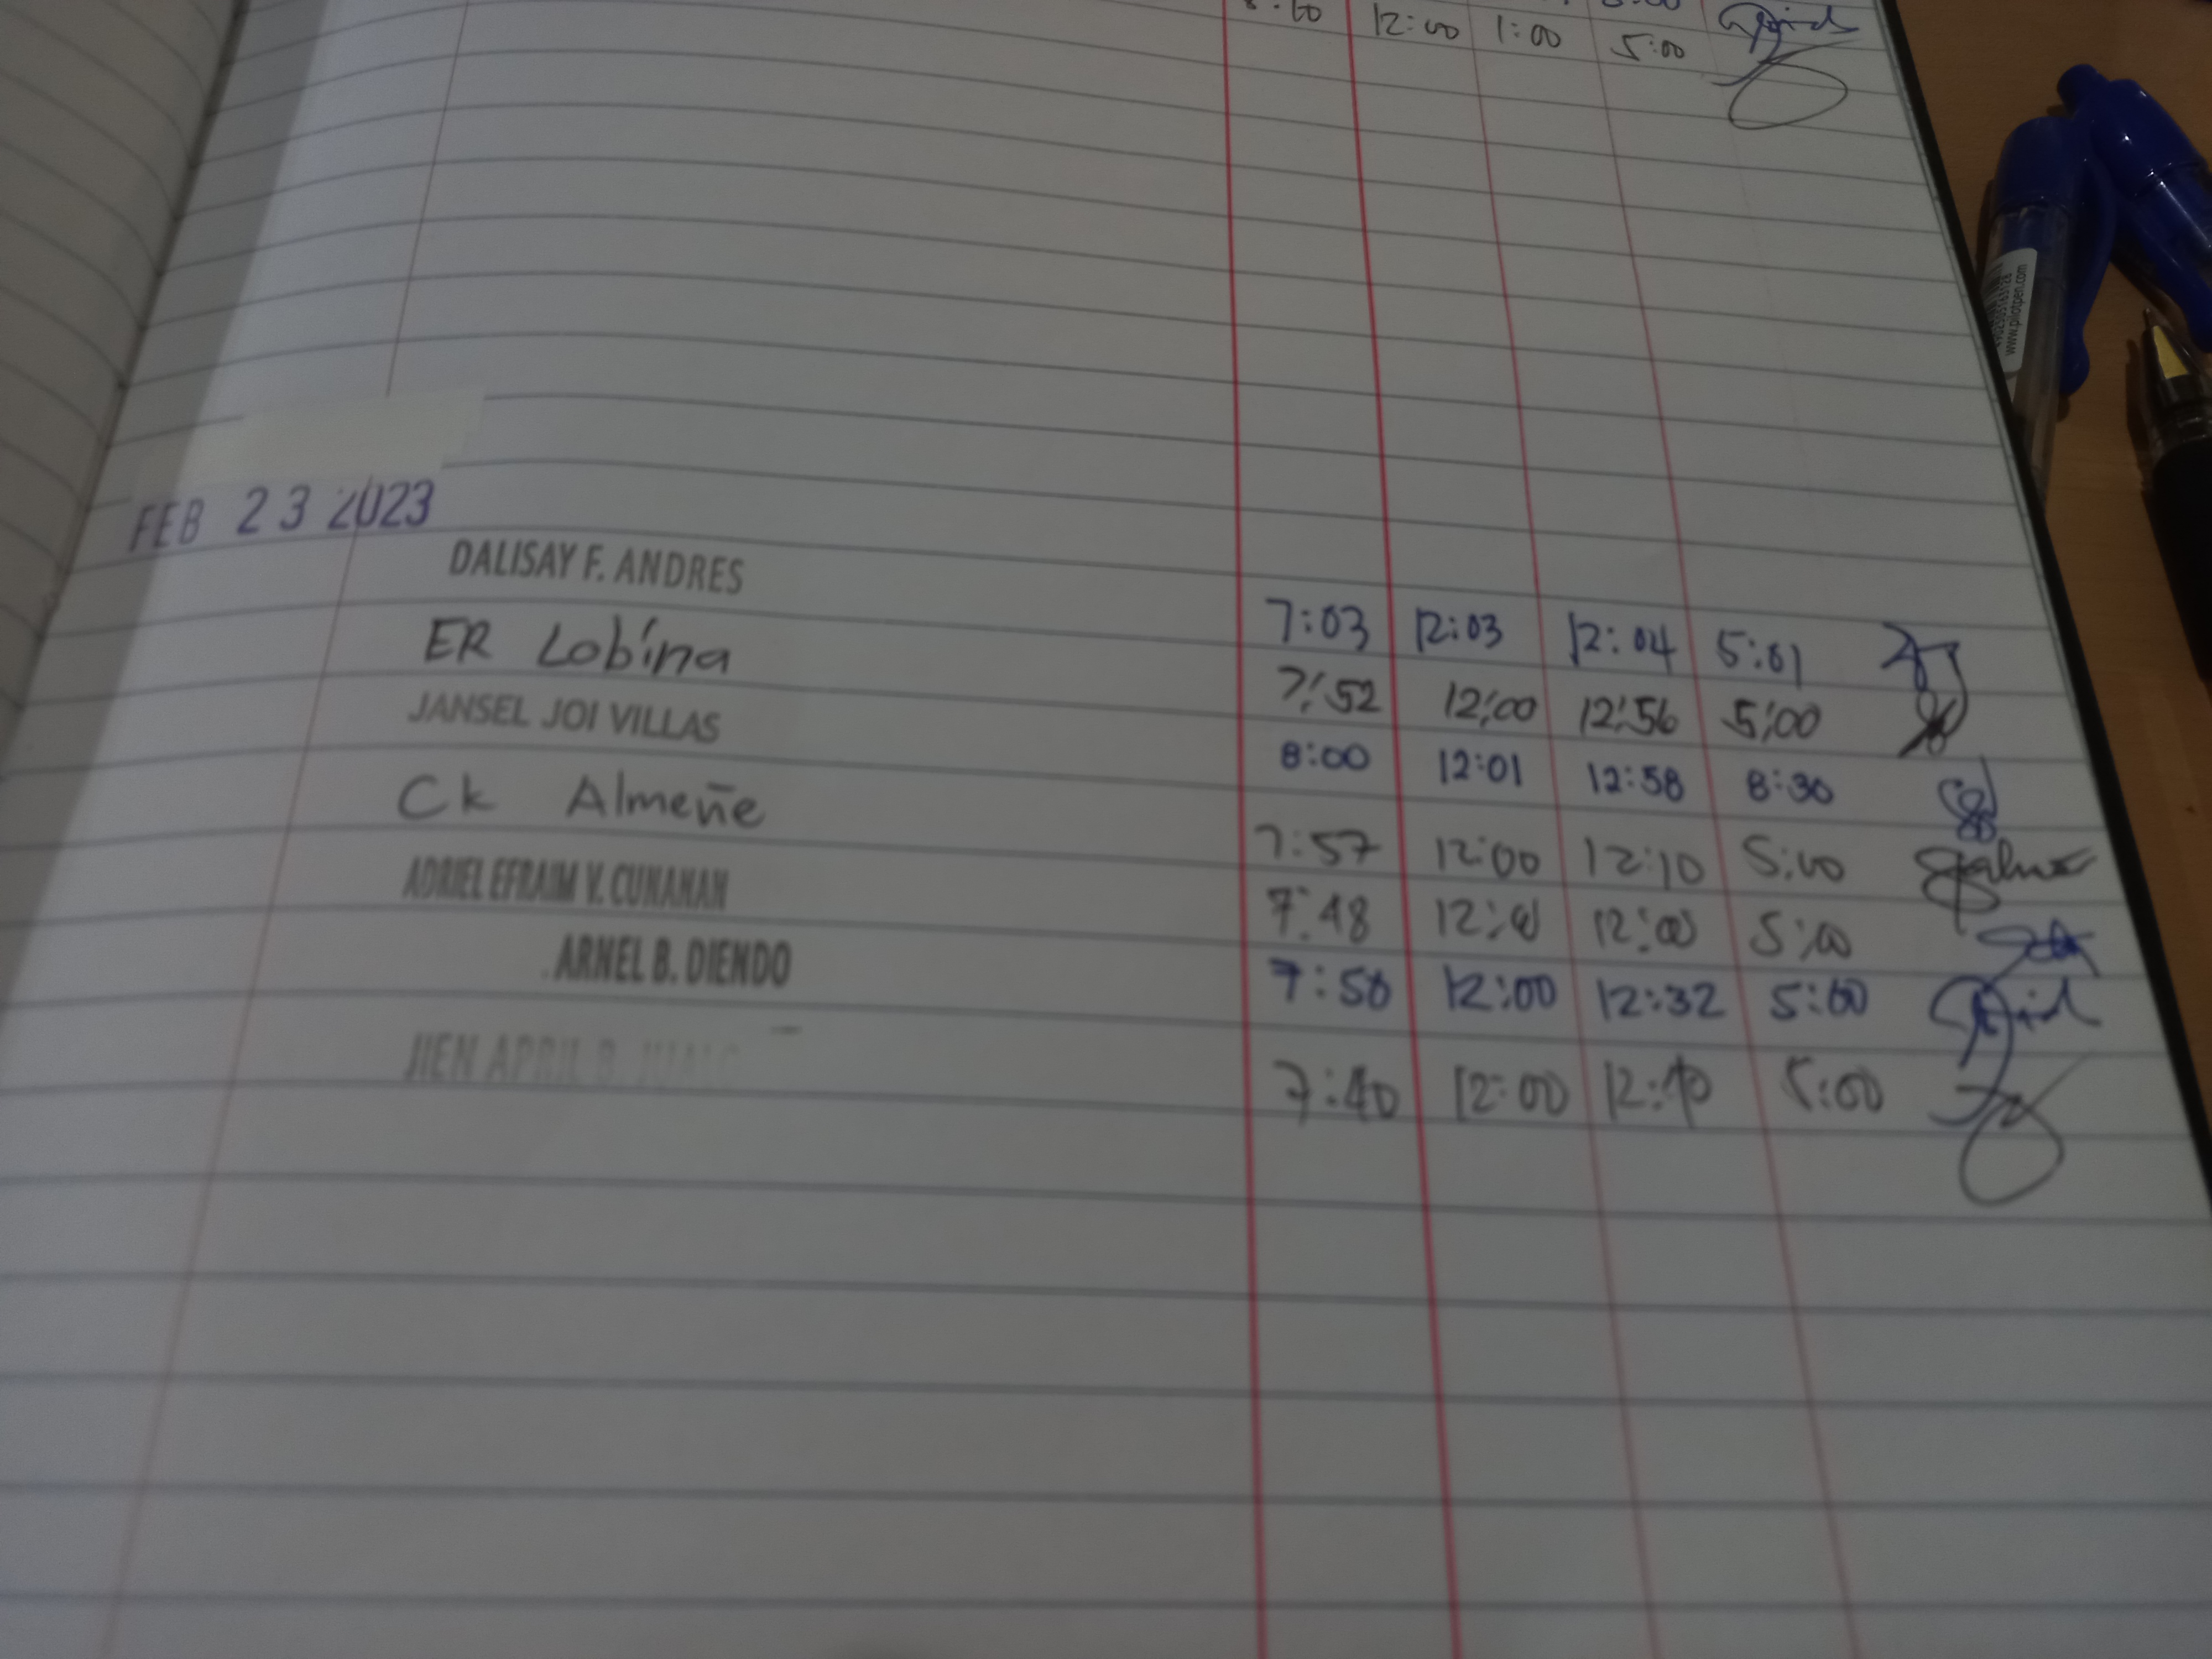 12:00 1:00 5:00
FEB 23 2023
DALISAY F. ANDRES 7:03 12:03 12:04 5:01
ER Lobina 7:52 12:00 12:56 5:00
JANSEL JOI VILLAS 8:00 12:01 12:58 8:30
Ck Almeñe 7:57 12:00 12:10 5:00
ADRIEL EFRAIM V. CUNANAN 7:48 12:00 5:00
ARNEL B. DIENDO 7:58 12:00 12:32 5:00
JIEN APRIL B. 7:40 12:00 5:00
www.pilotpen.com